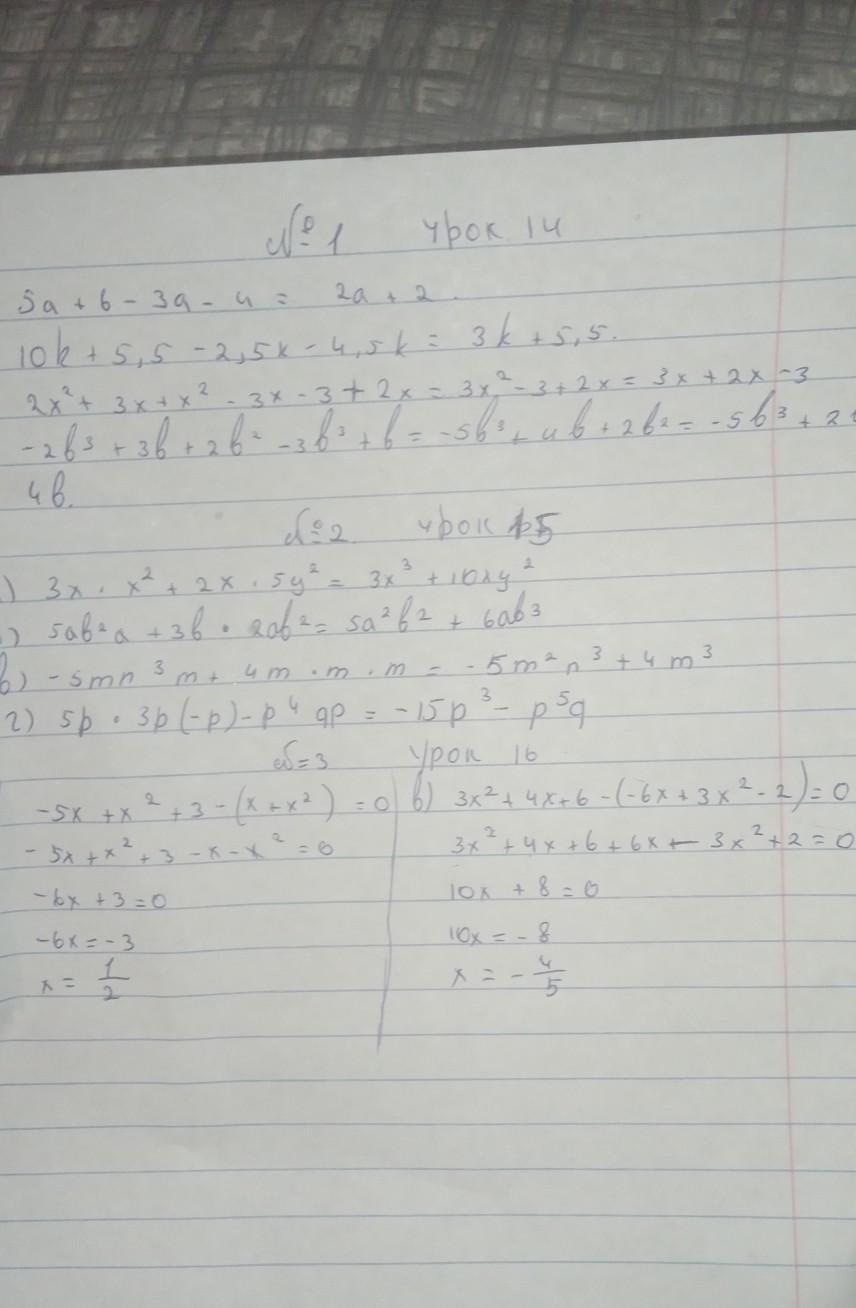 №1 Урок 14
5a + 6 - 3a - 4 = 2a + 2.
10k + 5,5 - 2,5k - 4,5k = 3k + 5,5.
2x² + 3x + x² - 3x - 3 + 2x = 3x² - 3 + 2x = 3x + 2x - 3
-2b³ + 3b + 2b² - 3b³ + b = -5b³ + 4b + 2b² = -5b³ + 2
4b.
№2 Урок 15
) 3x · x² + 2x · 5y² = 3x³ + 10xy²
) 5ab²a + 3b · 2ab² = 5a²b² + 6ab³
в) -5mn³m + 4m · m · m = -5m²n³ + 4m³
г) 5p · 3p(-p) - p⁴qp = -15p³ - p⁵q
№3 Урок 16
-5x + x² + 3 - (x + x²) = 0 б) 3x² + 4x + 6 - (-6x + 3x² - 2) = 0
-5x + x² + 3 - x - x² = 0 3x² + 4x + 6 + 6x - 3x² + 2 = 0
-6x + 3 = 0 10x + 8 = 0
-6x = -3 10x = -8
x = 1/2 x = -4/5